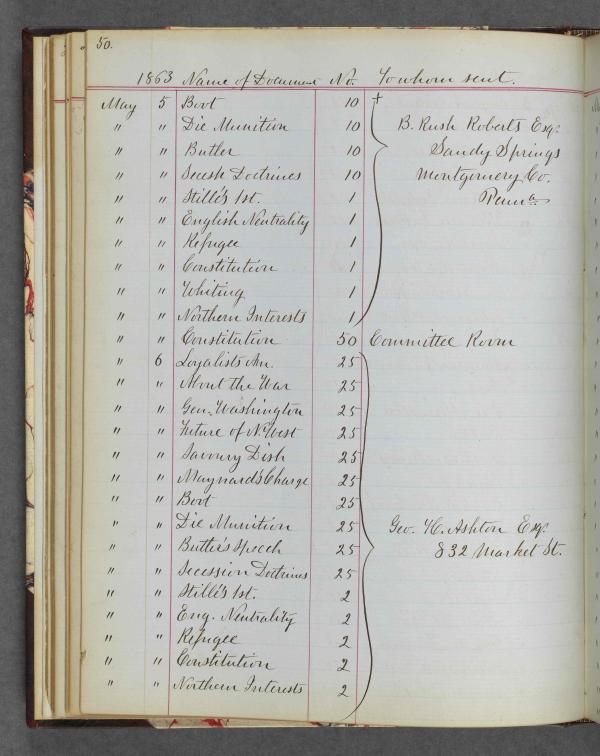 50.
1863 Name of Document No. To whom sent.
May 5 Boot 10 +
" " Die Munition 10 B. Rush Roberts Esq.
" " Butler 10 Sandy Springs
" " Secesh Doctrines 10 Montgomery Co.
" " Stillé's 1st. 1 Penna
" " English Neutrality 1
" " Refugee 1
" " Constitution 1
" " Whiting 1
" " Northern Interests 1
" " Constitution 50 Committee Room
" 6 Loyalists Am. 25
" " About the War 25
" " Gen. Washington 25
" " Future of N. West 25
" " Savoury Dish 25
" " Maynard's Charge 25
" " Boot 25
" " Die Munition 25 Geo. H. Ashton Esq.
" " Butler's Speech 25 832 Market St.
" " Secession Doctrines 25
" " Stillé's 1st. 2
" " Eng. Neutrality 2
" " Refugee 2
" " Constitution 2
" " Northern Interests 2